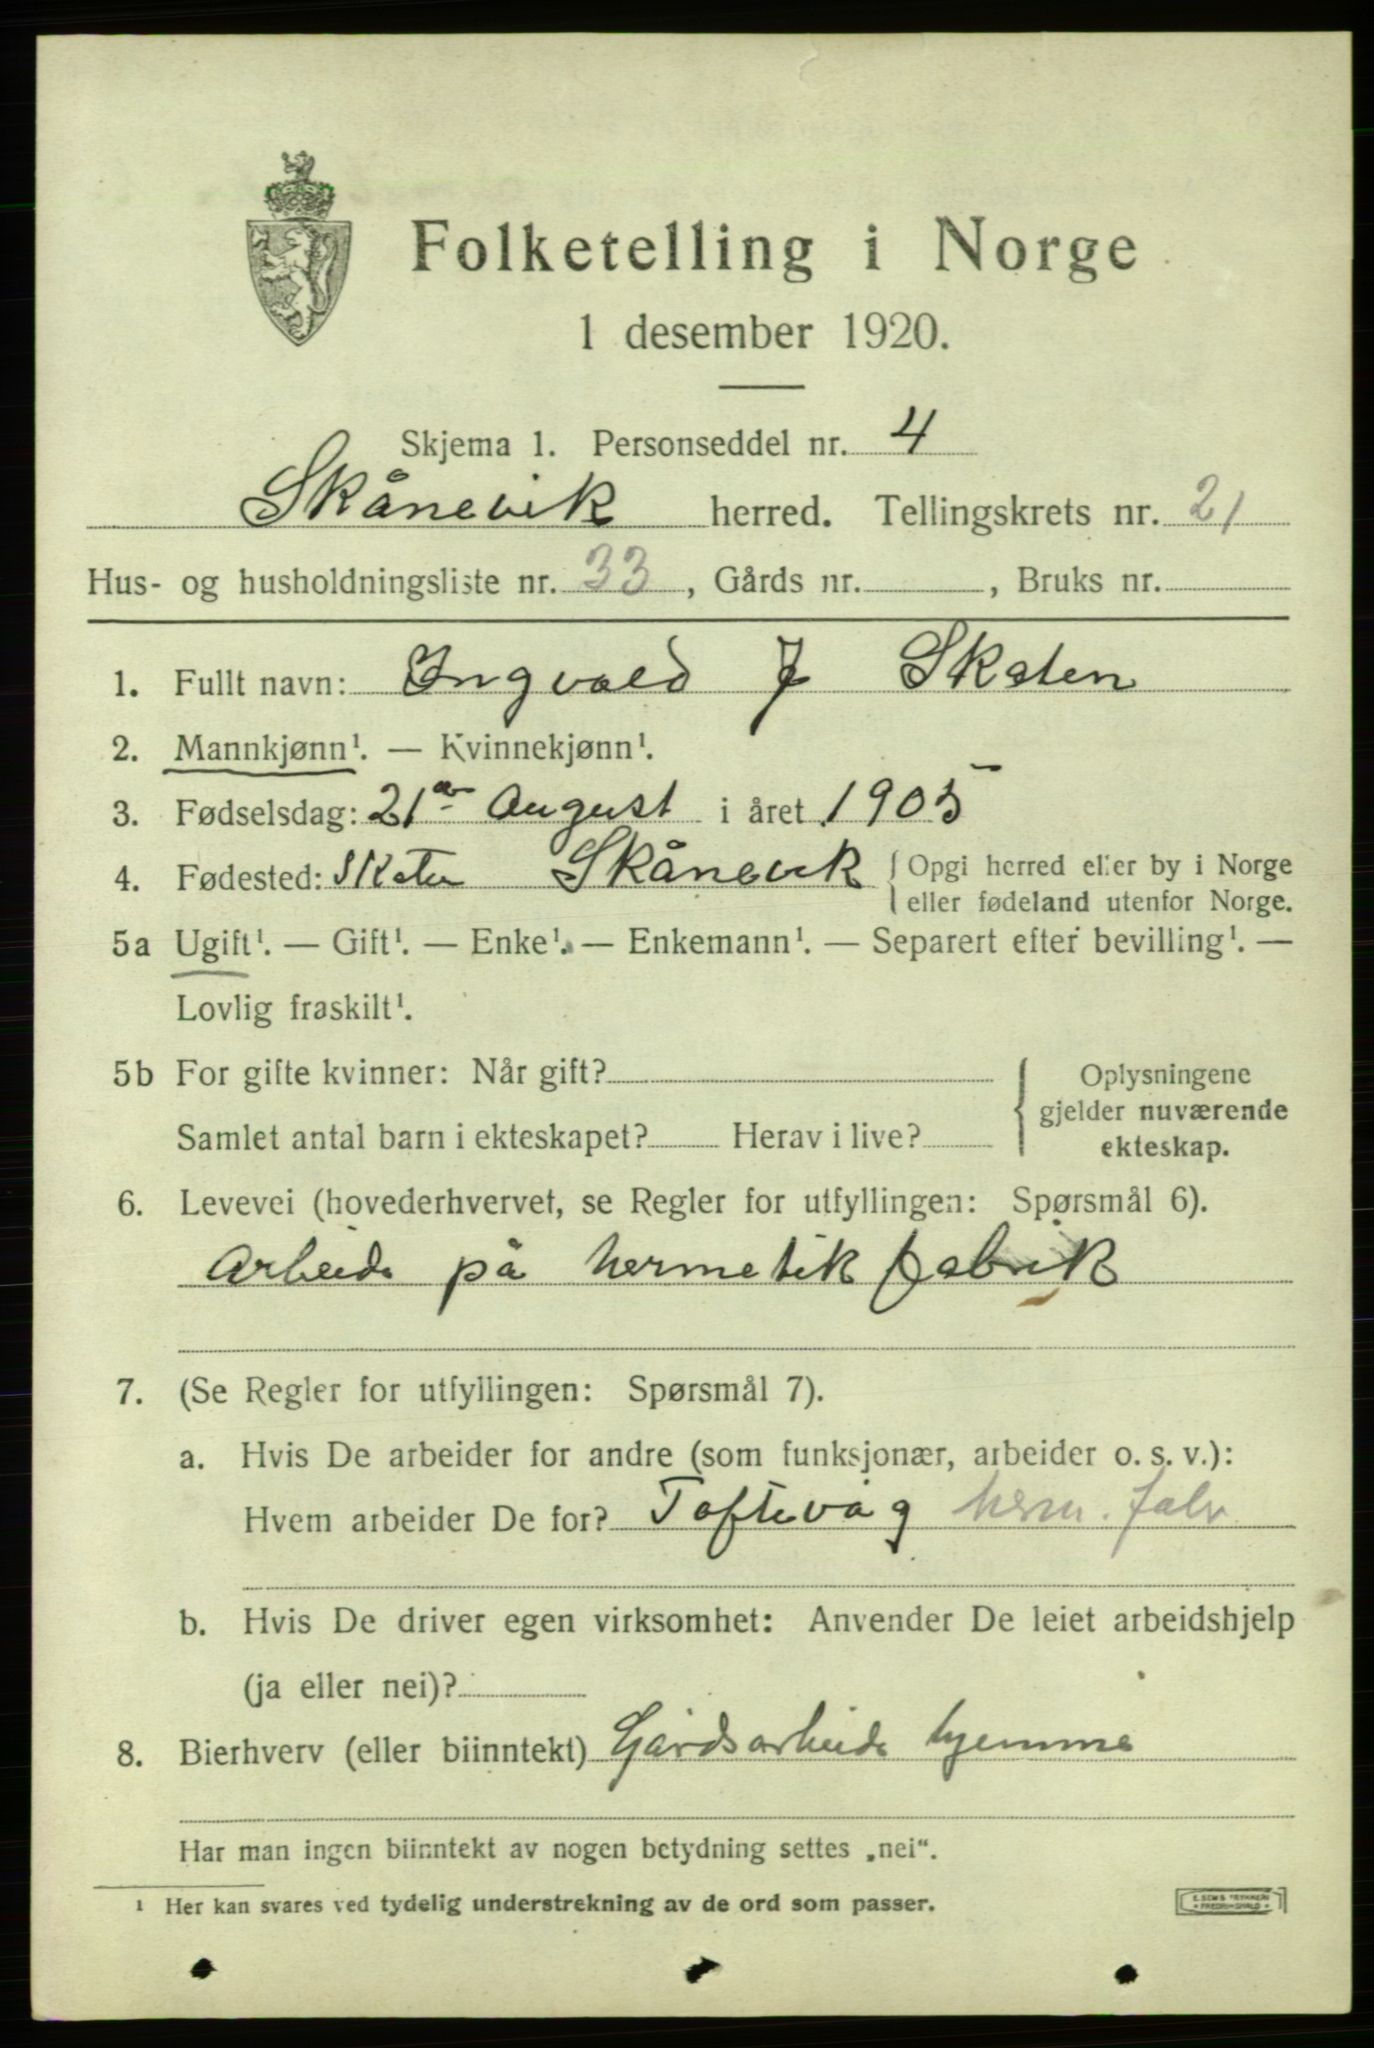 Folketelling i Norge
1 desember 1920.
Skjema 1. Personseddel nr. 4
Skånevik herred. Tellingskrets nr. 21
Hus- og husholdningsliste nr. 33, Gårds nr. , Bruks nr.
1. Fullt navn: Ingvald J Skaten
2. Mannkjønn¹. — Kvinnekjønn¹.
3. Fødselsdag: 21 August i året 1905
4. Fødested: Skaten Skånevik { Opgi herred eller by i Norge
eller fødeland utenfor Norge.
5a Ugift¹. — Gift¹. — Enke¹. — Enkemann¹. — Separert efter bevilling¹. —
Lovlig fraskilt¹.
5b For gifte kvinner: Når gift?
Samlet antal barn i ekteskapet? Herav i live?
Oplysningene
gjelder nuværende
ekteskap.
6. Levevei (hovederhvervet, se Regler for utfyllingen: Spørsmål 6).
Arbeide på hermetik fabrik
7. (Se Regler for utfyllingen: Spørsmål 7).
a. Hvis De arbeider for andre (som funksjonær, arbeider o. s. v.):
Hvem arbeider De for? Toftevåg herm. fabr
b. Hvis De driver egen virksomhet: Anvender De leiet arbeidshjelp
(ja eller nei)?
8. Bierhverv (eller biinntekt) Gårdsarbeide hjemme
Har man ingen biinntekt av nogen betydning settes „nei“.
¹ Her kan svares ved tydelig understrekning av de ord som passer.